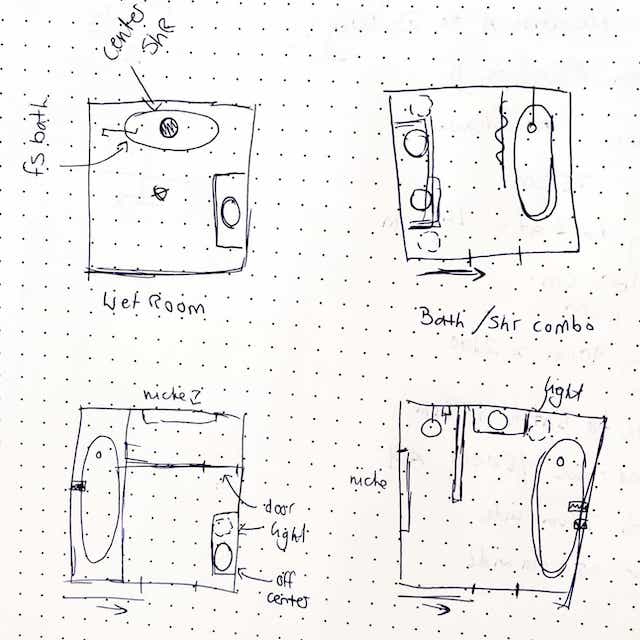 center
Shr
fs bath
Wet Room
Bath/Shr combo
niche
door
light
off
center
light
niche